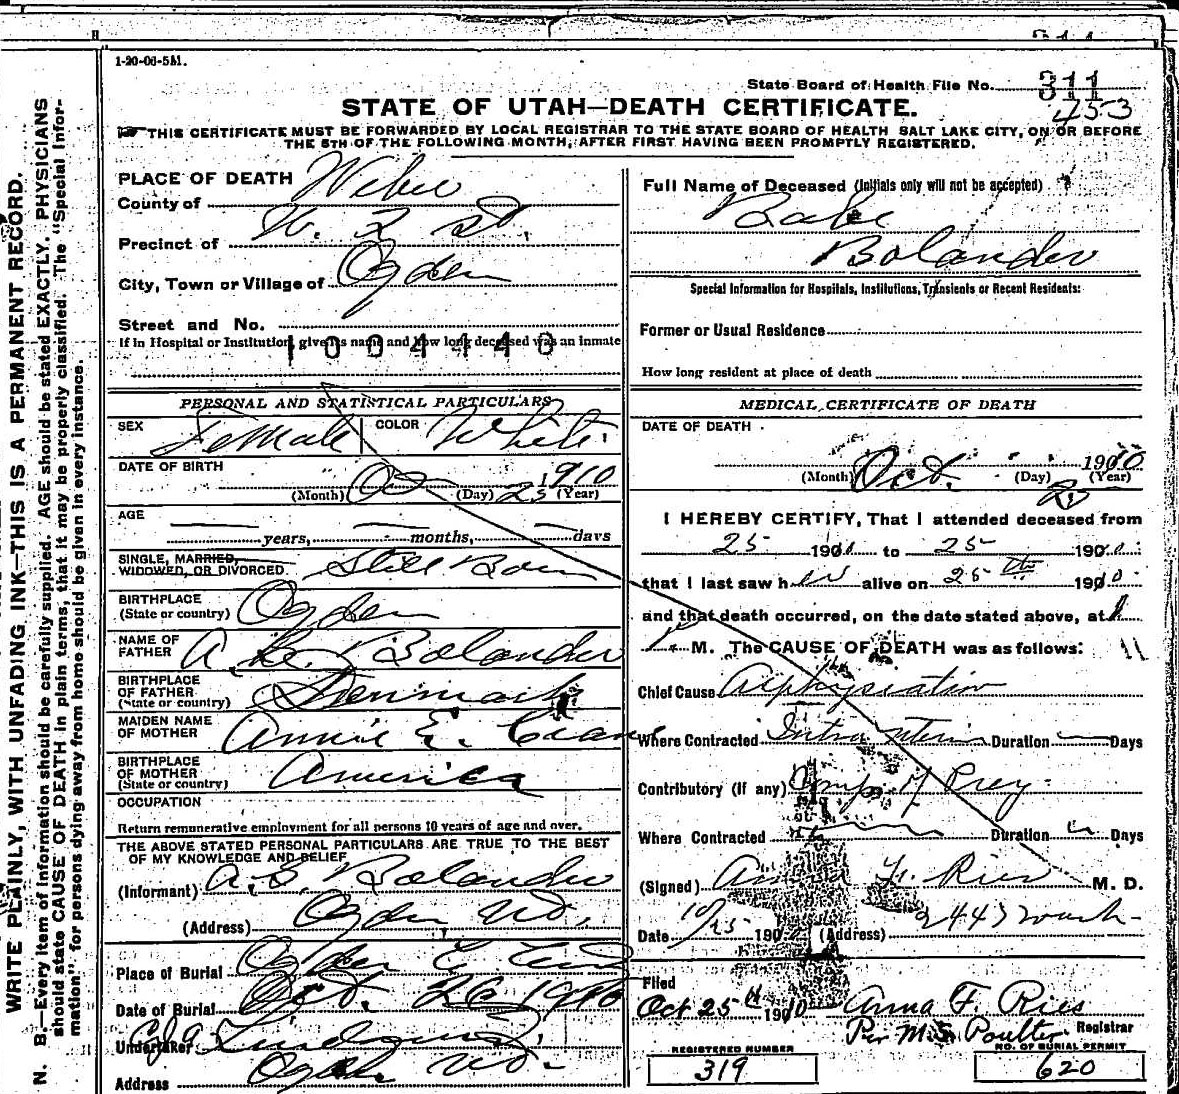 1-20-06-5M.
State Board of Health File No. 311
453
STATE OF UTAH—DEATH CERTIFICATE.
THIS CERTIFICATE MUST BE FORWARDED BY LOCAL REGISTRAR TO THE STATE BOARD OF HEALTH SALT LAKE CITY, ON OR BEFORE
THE 5TH OF THE FOLLOWING MONTH, AFTER FIRST HAVING BEEN PROMPTLY REGISTERED.
WRITE PLAINLY, WITH UNFADING INK—THIS IS A PERMANENT RECORD.
N. B.—Every item of information should be carefully supplied. AGE should be stated EXACTLY. PHYSICIANS
should state CAUSE OF DEATH in plain terms, that it may be properly classified. The "Special Infor-
mation" for persons dying away from home should be given in every instance.
PLACE OF DEATH
County of Weber
Precinct of W. 2 St.
City, Town or Village of Ogden
Street and No.
If in Hospital or Institution, give its name and how long deceased was an inmate
1004440
PERSONAL AND STATISTICAL PARTICULARS
SEX Female COLOR White
DATE OF BIRTH 1910
(Month) Oct (Day) 25 (Year)
AGE
years, months, days
SINGLE, MARRIED,
WIDOWED, OR DIVORCED Still Born
BIRTHPLACE
(State or country) Ogden
NAME OF
FATHER Bolander
BIRTHPLACE
OF FATHER
(State or country) Denmark
MAIDEN NAME
OF MOTHER Annie E. Crane
BIRTHPLACE
OF MOTHER
(State or country) America
OCCUPATION
Return remunerative employment for all persons 10 years of age and over.
THE ABOVE STATED PERSONAL PARTICULARS ARE TRUE TO THE BEST
OF MY KNOWLEDGE AND BELIEF
(Informant) Bolander
(Address) Ogden Ut.
Place of Burial Ogden C Cem
Date of Burial Oct. 26 1910
Undertaker
Address Ogden Ut.
Full Name of Deceased (Initials only will not be accepted)
Babe
Bolander
Special Information for Hospitals, Institutions, Transients or Recent Residents:
Former or Usual Residence
How long resident at place of death
MEDICAL CERTIFICATE OF DEATH
DATE OF DEATH
1910
(Month) Oct. (Day) (Year)
25
I HEREBY CERTIFY, That I attended deceased from
25 1910 to 25 1910
that I last saw her alive on 25th 1910
and that death occurred, on the date stated above, at
M. The CAUSE OF DEATH was as follows:
Chief Cause Asphyxiation
Where Contracted Intra Uterin Duration Days
Contributory (If any) Comp of Preg.
Where Contracted Duration Days
(Signed) Anna F. Ries M. D.
Date 10/25 1910 (Address) 2447 Wash-
Filed
Oct 25th 1910 Anna F. Ries
Per M.S. Poulter Registrar
REGISTERED NUMBER
319
NO. OF BURIAL PERMIT
620